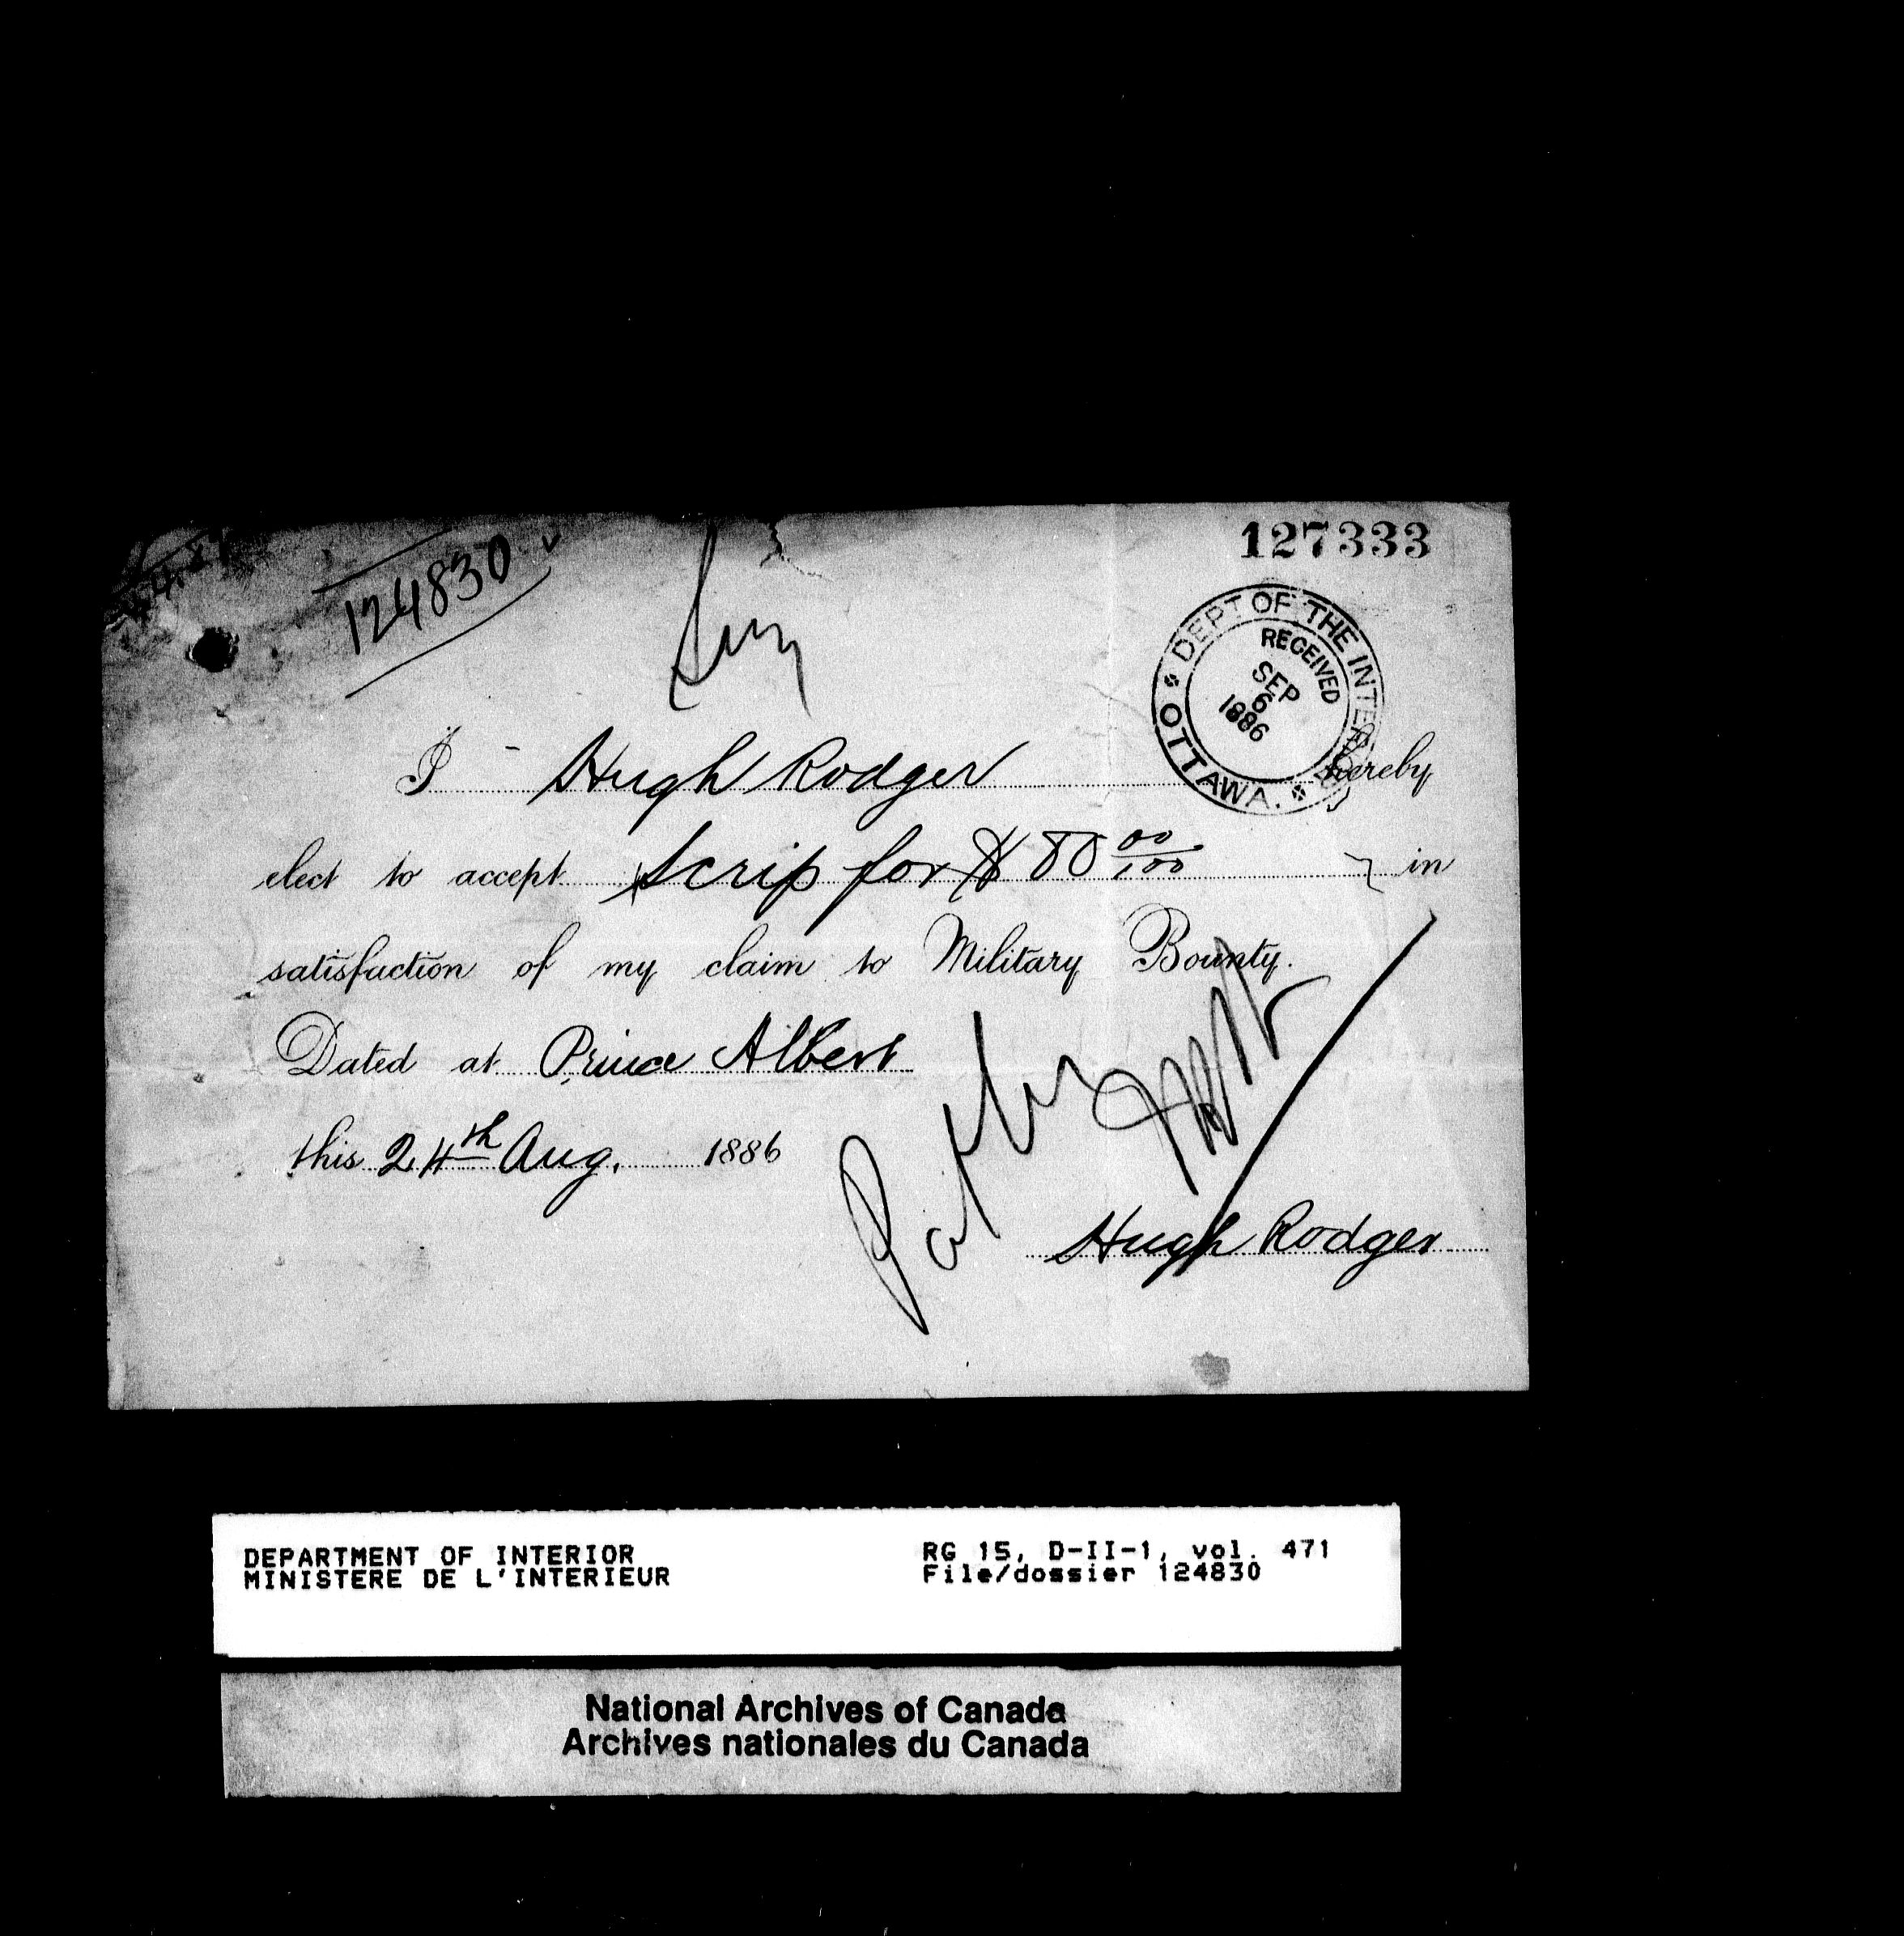 127333
124830
DEPT OF THE INTERIOR
RECEIVED
SEP
6
1886
OTTAWA.
I Hugh Rodger hereby
elect to accept Scrip for $80 00/100 in
satisfaction of my claim to Military Bounty.
Dated at Prince Albert
this 24th Aug. 1886
Hugh Rodger
DEPARTMENT OF INTERIOR
MINISTERE DE L'INTERIEUR
RG 15, D-II-1, vol. 471
File/dossier 124830
National Archives of Canada
Archives nationales du Canada